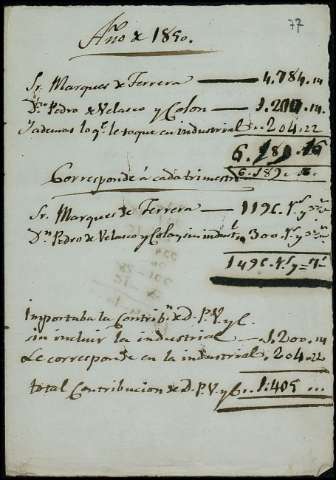 77
Año de 1850.
Sr. Marques de Ferrera — 4.784.14
Dn. Pedro de Velasco y Colon — 1.200.14
Yademas lo qe. le toque en industrial 204.22
6.189.16
6.189.. 16.
Corresponde á cada trimestre
Sr. Marques de Ferrera — 1196. rs. y
Dn. Pedro de Velasco y Colon sin industl. 300. rs. y
1496. rs. y
Importaba la Contribn. de D. P. V. y C.
sin incluir la industrial 1.200.14
Le corresponde en la industrial 204.22
total Contribucion de D. P. V. y C. .. 1.405 ..